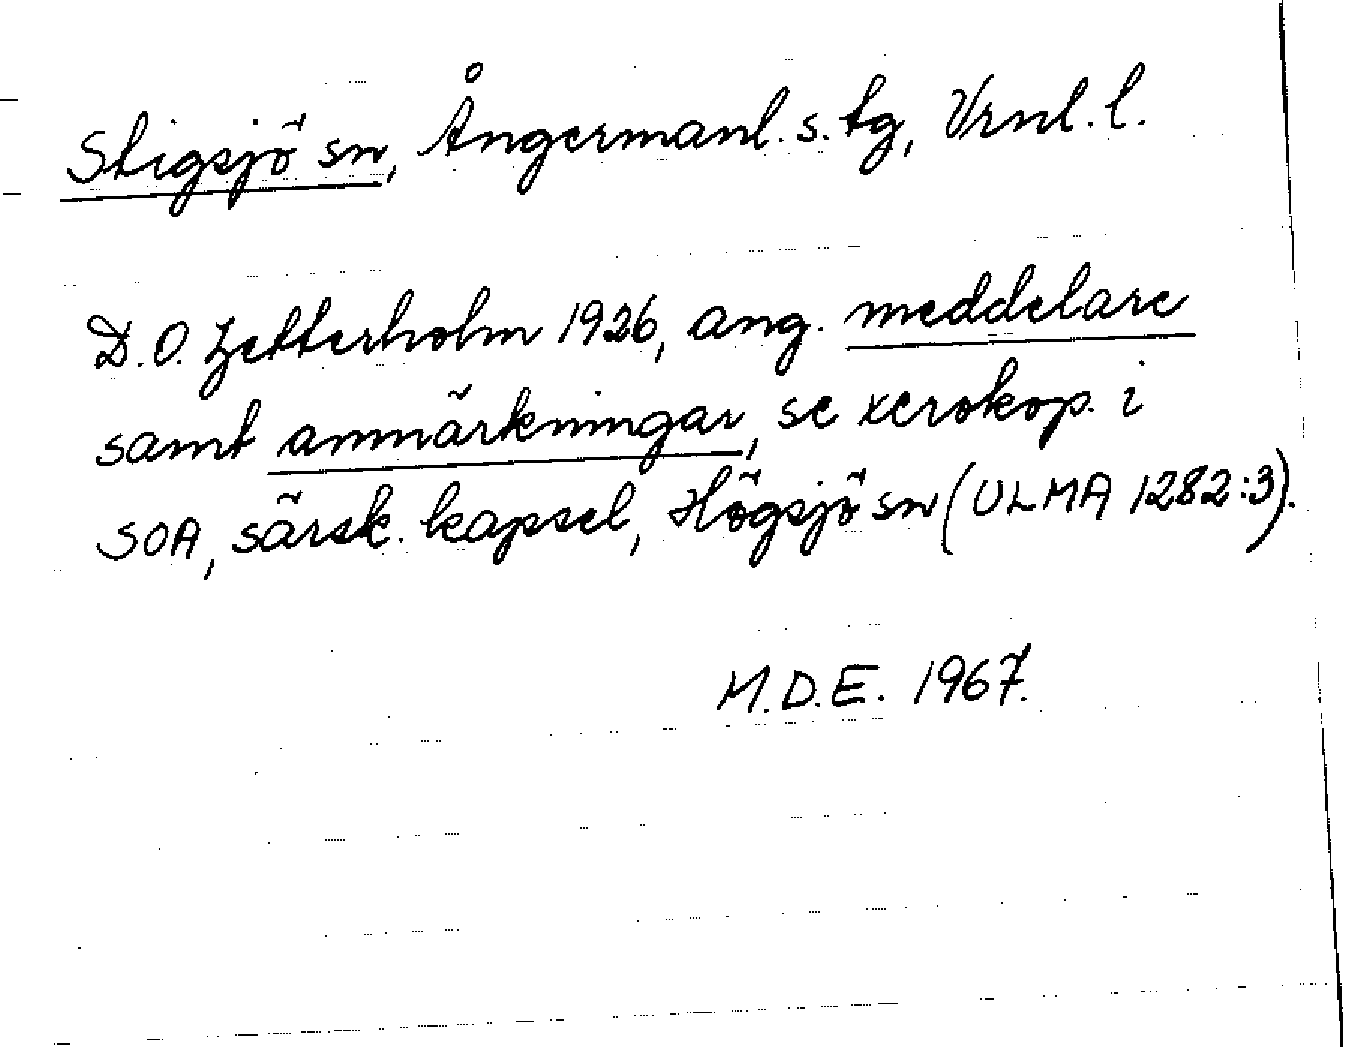 Stigsjö sn, Ångermanl. s. tg, Vrnl. l.
D.O. Zetterholm 1926, ang. meddelare
samt anmärkningar, se xerokop. i
SOA, särsk. kapsel, Högsjö sn (ULMA 1282:3).
M.D.E. 1967.